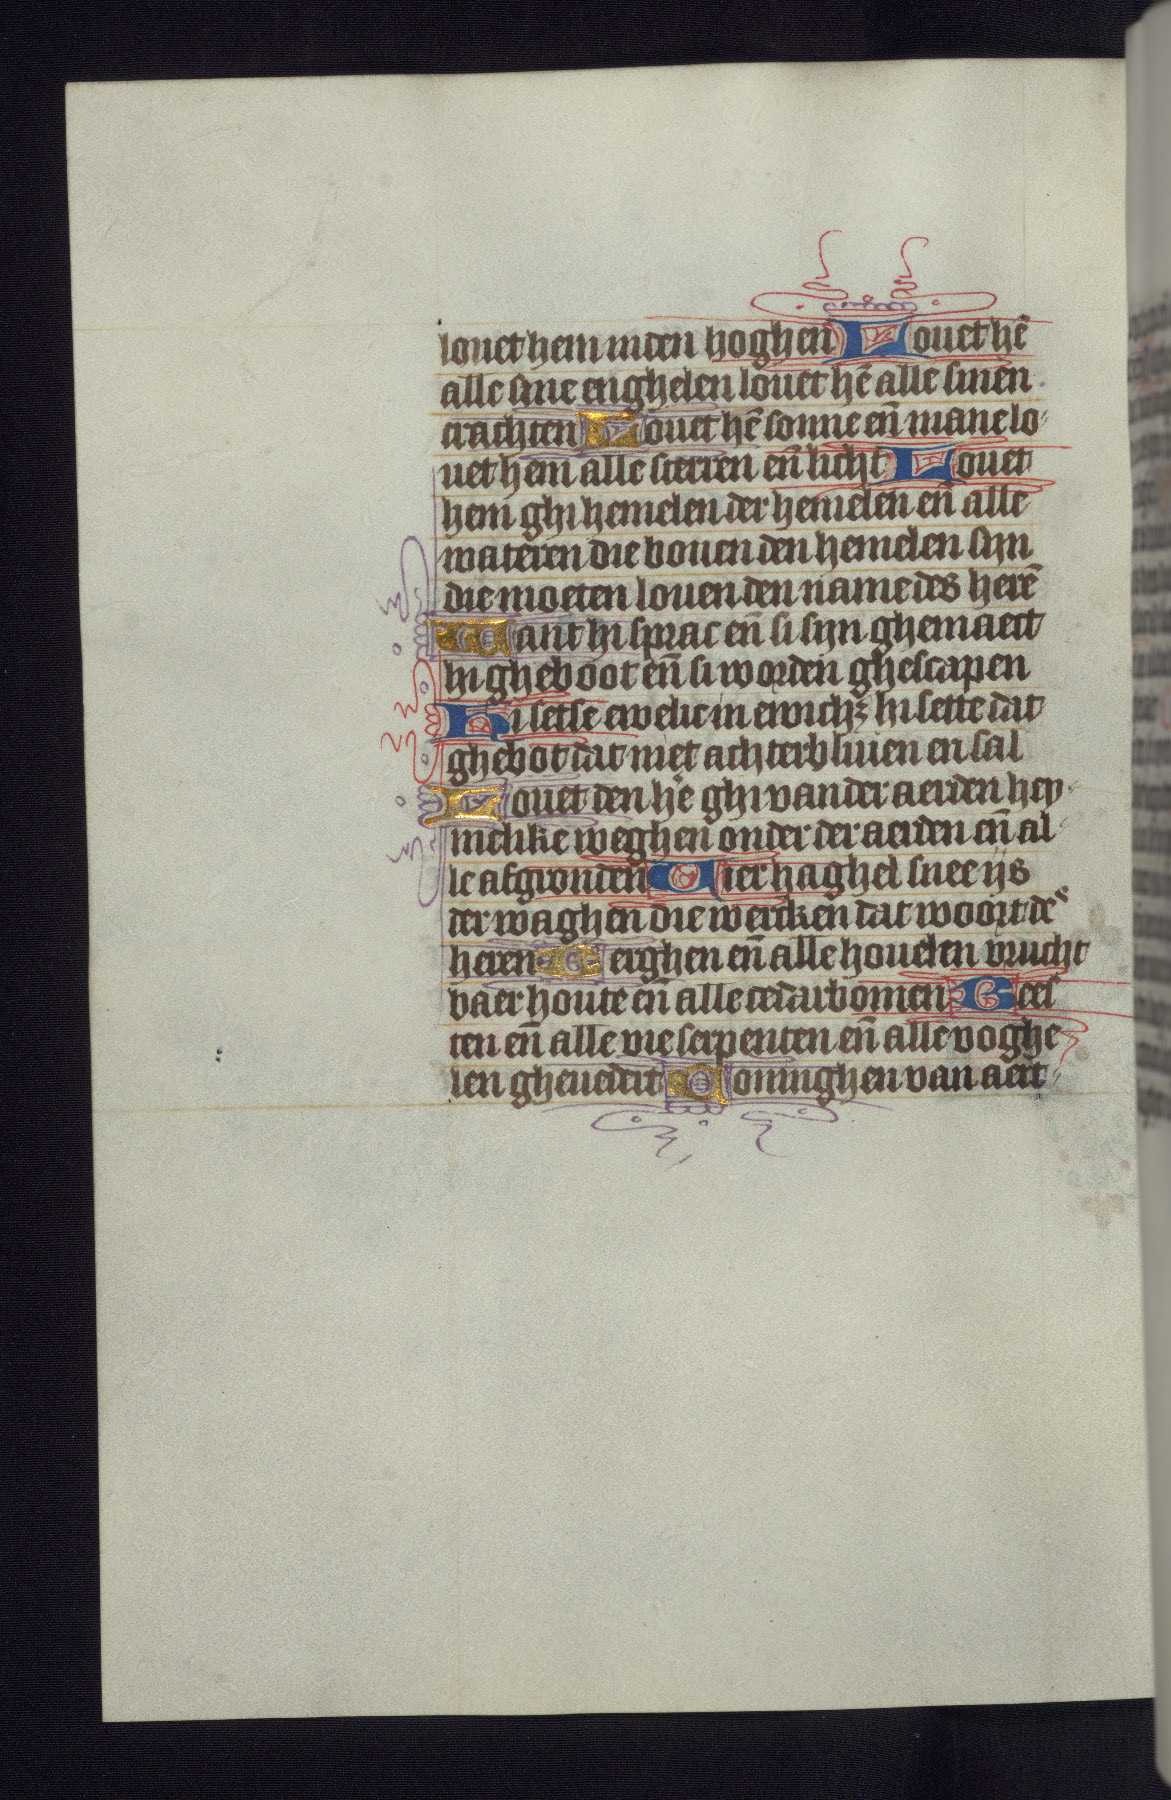 louet hem in den hoghen Louet hē
alle sine enghelen louet hē alle sinen
crachten Louet hē sonne eñ mane lo
uet hem alle sterren eñ licht Louet
hem ghi hemelen der hemelen eñ alle
wateren die bouen den hemelen sijn
die moeten louen den name des herē
Want hi sprac eñ si sijn ghemaect
hi gheboot eñ si worden ghescapen
Hi setse ewelic in ewichꝫ hi sette dat
ghebot dat niet achterbliuen en sal
Louet den hē ghi van der aerden hey
melike weghen onder der aerden eñ al
le afgronden Vier haghel snee ijs
der waghen die wercken dat woort des
heren Berghen eñ alle houelen vrucht
baer houte eñ alle cedarbomen Bees
ten eñ alle vie serpenten eñ alle voghe
len gheuedert Coninghen van aert